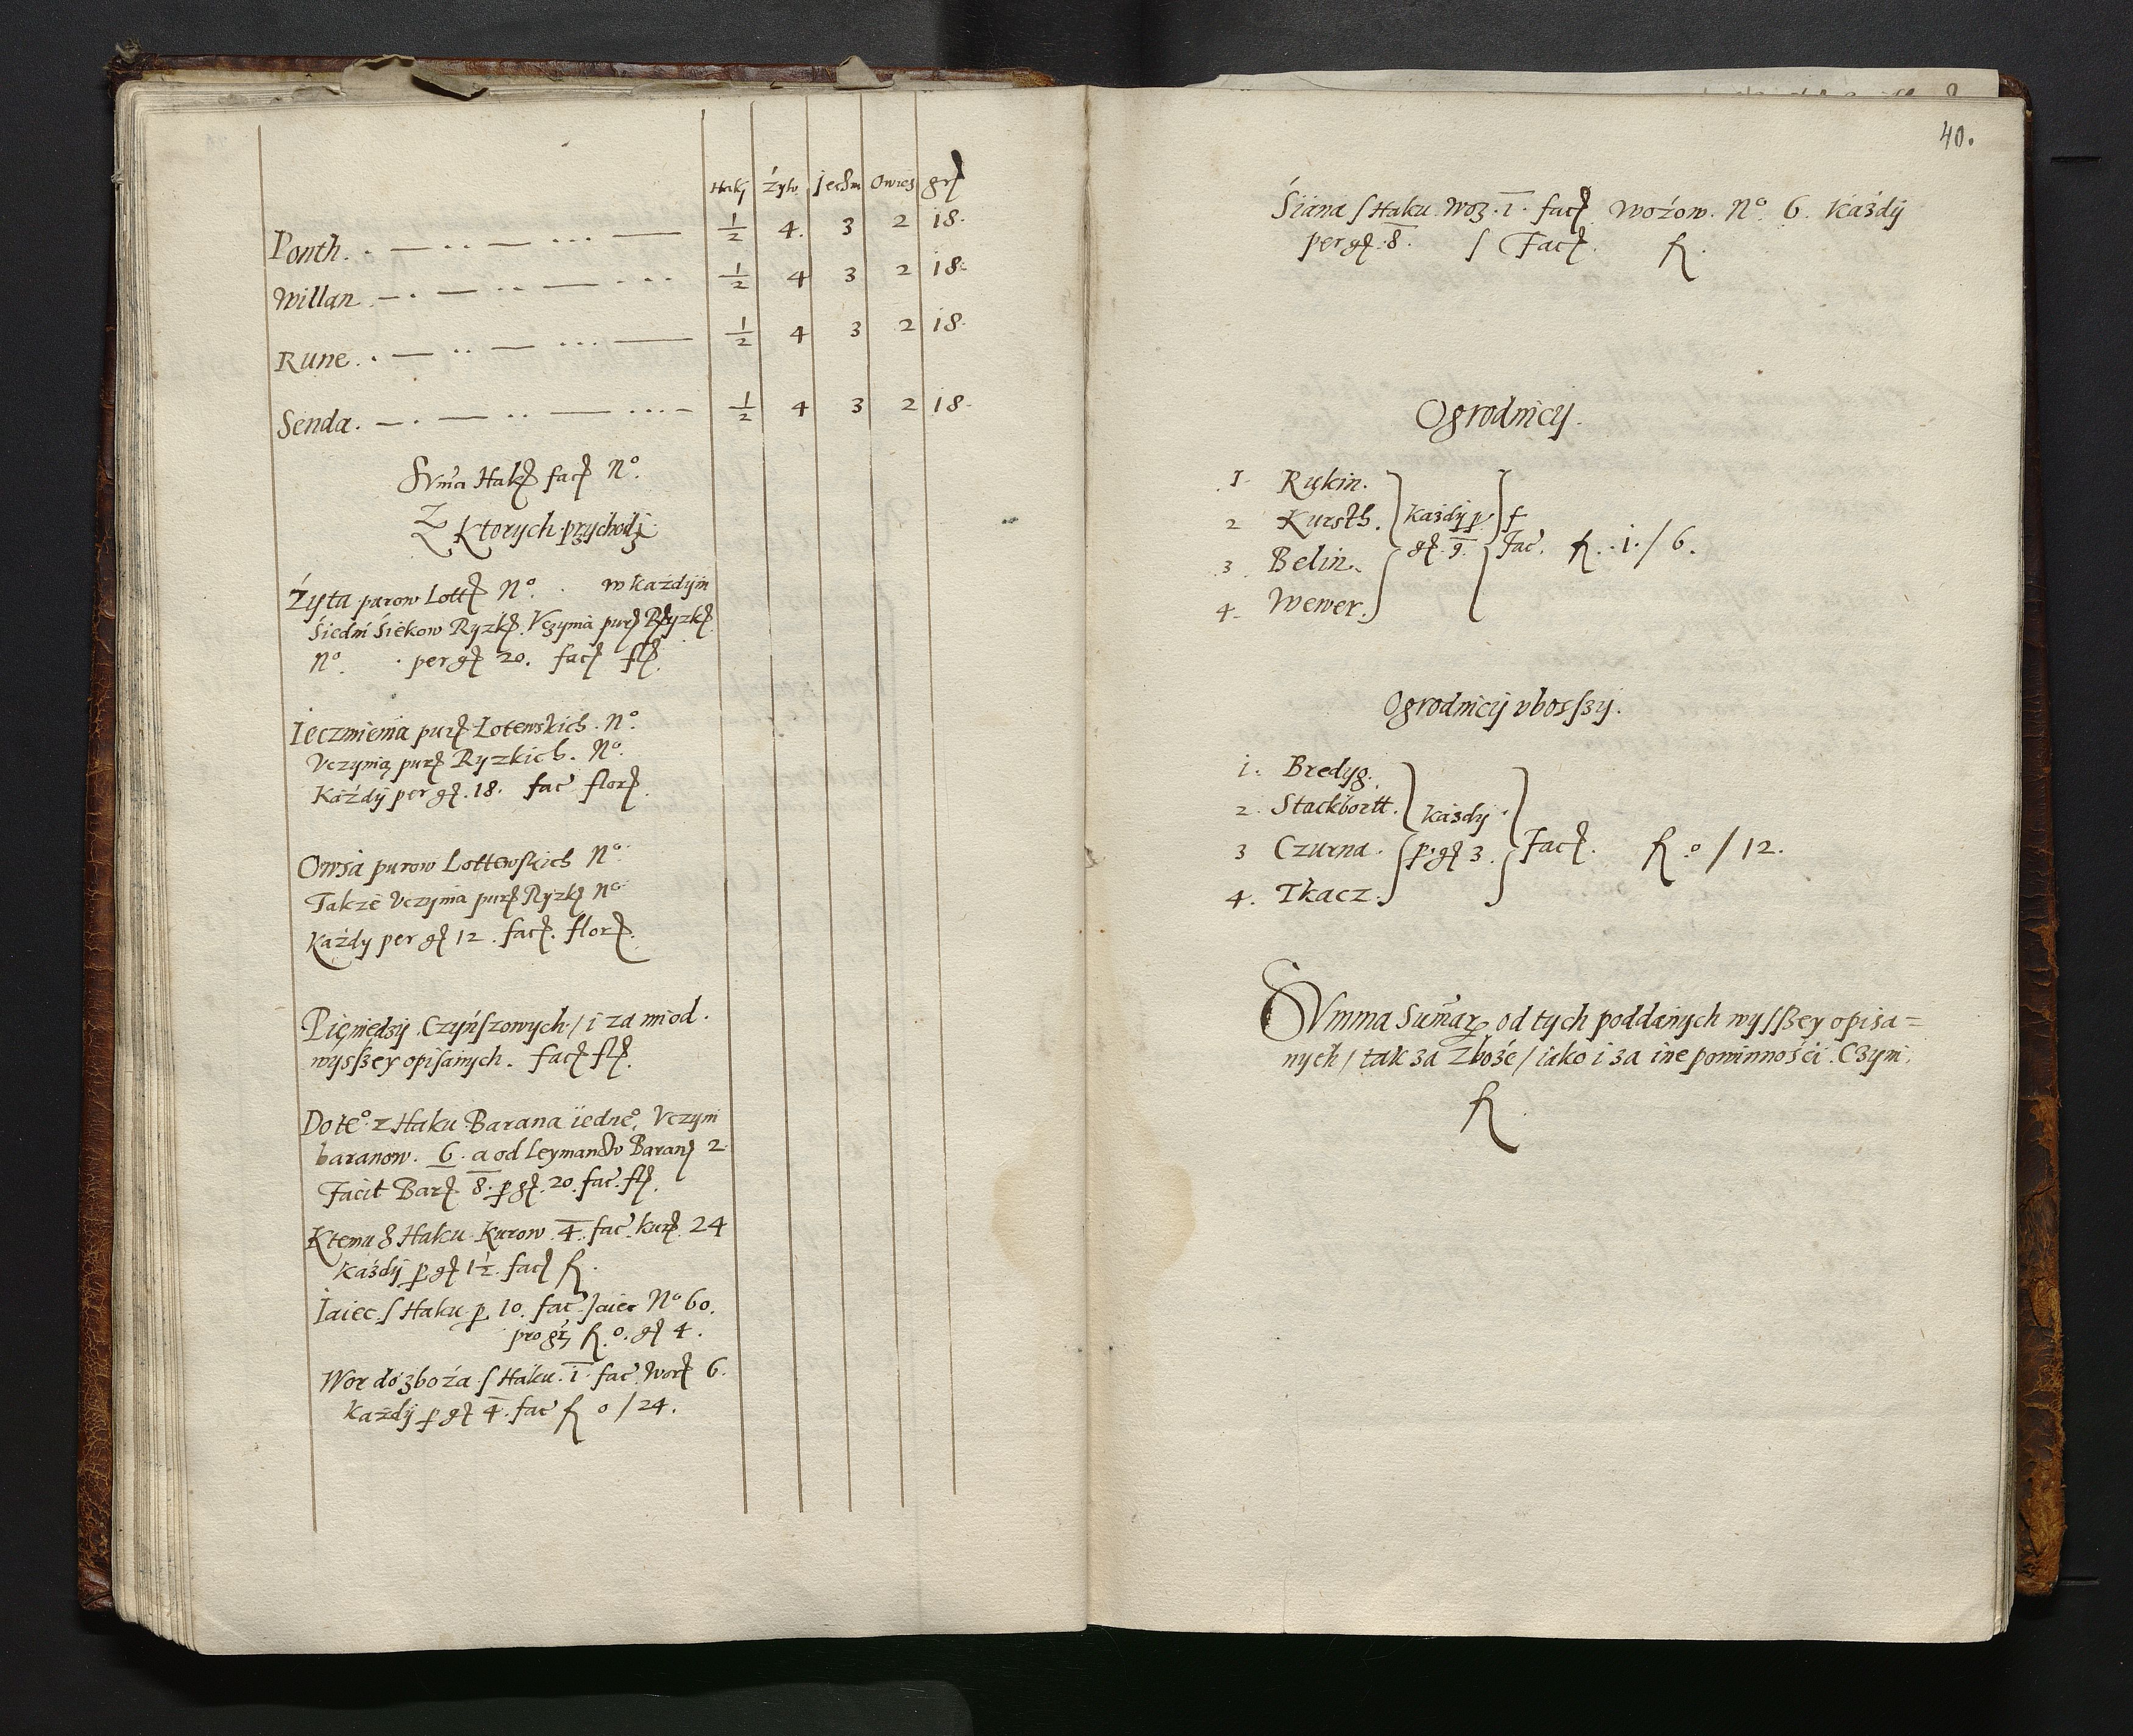 Hakj Żyto Jechm Owies grl
Ponth. 1/2 4. 3 2 18.
Willan 1/2 4 3 2 18.
Rune. 1/2 4 3 2 18.
Senda. 1/2 4 3 2 18.
Suma Hak fac No.
Z Ktorych przychodzi
Żyta purow Lott No. w każdym
Siedm Siekow Ryzk. Vczynia pur Ryzk
No. per gl 20. fac fl
Ieczmienia pur Łotewskich. No.
Vczynią pur Ryzkich. No.
Każdy per gl. 18. fac flor
Owsa purow Lottewskich No.
Takze Vczynia pur Ryzk No
Każdy per gl 12. fac. flor
Pieniędzy Czynszowych / i za miod.
wysszey opisanych. fac fl
Do te° z Haku Barana iedne°, Vczyni
baranow. 6. a od Leymanow Baran 2
Facit Bar 8. p gl. 20. fac. fl.
Ktemu z Haku Kurow 4. fac. kur 24
Każdy p gl 1 1/2. fac fl.
Jaiec s Haku p 10. fac Jaiec No 60.
pro gr fl. 0. gl 4.
Wor do zboża s Haku. 1. fac. Wor 6.
każdy p gl 4. fac fl 0 / 24.
40.
Siana s Haku. Woz. 1. fac Wozow. No. 6. Każdy
per gl. 8. Fac. fl.
Ogrodnicy.
1. Rykin.
2 Kursth.
3 Belin.
4. Wewer.
Każdy p
gl. 9. Fac. fl. 1. / 6.
Ogrodnicy vbosszy.
1. Bredyg.
2. Stackbortt.
3 Czurna.
4. Tkacz.
każdy
p. gl 3. Fac. fl. 0 / 12.
Summa Sumar od tych poddanych wysszey opisa=
nych / tak za zboże / iako i za ine powinności. Czyni.
fl